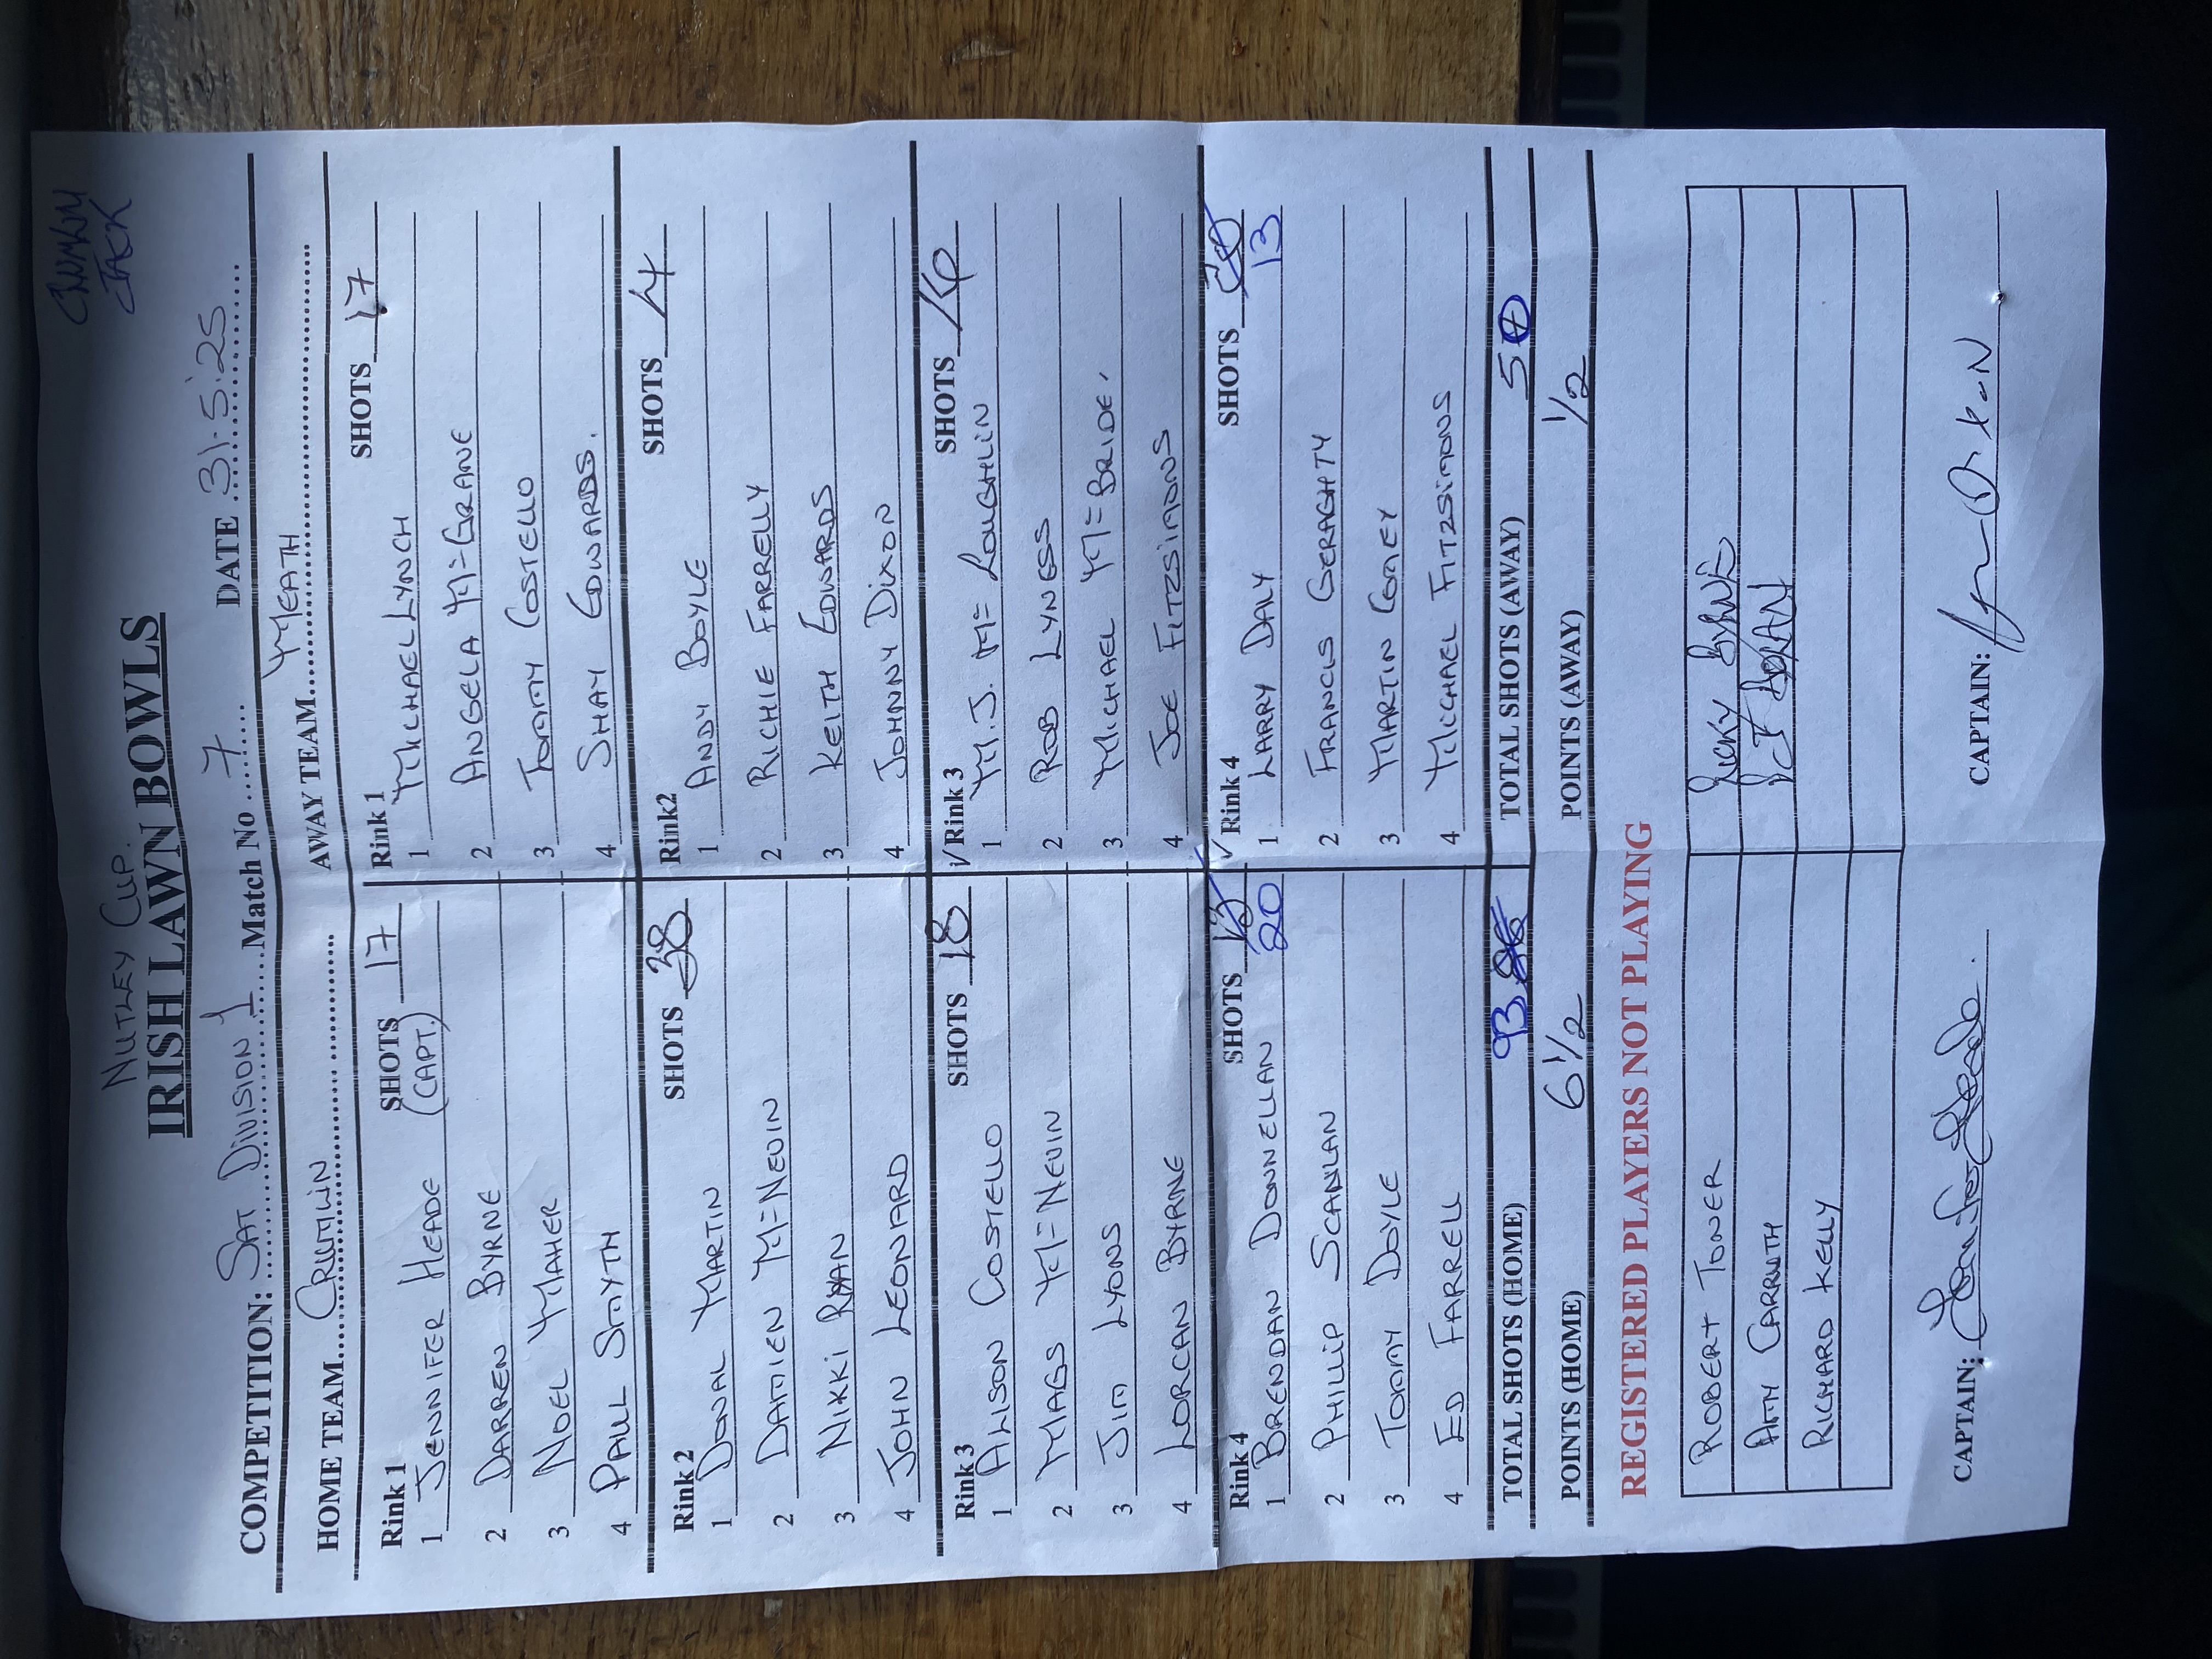 JACK
NUTLEY CUP.
IRISH LAWN BOWLS
COMPETITION: SAT DIVISION 1 Match No 7 DATE 31.5.25
HOME TEAM CRUMLIN AWAY TEAM MEATH
Rink 1 SHOTS 17 Rink 1 SHOTS 17
1 JENNIFER HEADE (CAPT.) 1 MICHAEL LYNCH
2 DARREN BYRNE 2 ANGELA Mc GRANE
3 NOEL MAHER 3 TOMMY COSTELLO
4 PAUL SMYTH 4 SHAY EDWARDS.
Rink 2 SHOTS 38 Rink2 SHOTS 4
1 DONAL MARTIN 1 ANDY BOYLE
2 DAMIEN Mc NEVIN 2 RICHIE FARRELLY
3 NIKKI RYAN 3 KEITH EDWARDS
4 JOHN LEONARD 4 JOHNNY DIXON
Rink 3 SHOTS 18 ✓ Rink 3 SHOTS 16
1 ALISON COSTELLO 1 M.J. Mc LOUGHLIN
2 MAGS Mc NEVIN 2 ROB LYNESS
3 JIM LYONS 3 MICHAEL Mc BRIDE.
4 LORCAN BYRNE 4 JOE FITZSIMONS
Rink 4 SHOTS 20 ✓ Rink 4 SHOTS 13
1 BRENDAN DONNELLAN 1 LARRY DALY
2 PHILLIP SCANLAN 2 FRANCIS GERAGHTY
3 TOMMY DOYLE 3 MARTIN COMEY
4 ED FARRELL 4 MICHAEL FITZSIMONS
TOTAL SHOTS (HOME) 93 TOTAL SHOTS (AWAY) 50
POINTS (HOME) 6 1/2 POINTS (AWAY) 1/2
REGISTERED PLAYERS NOT PLAYING
ROBERT TONER BYRNE
AMY CARRUTH
RICHARD KELLY
CAPTAIN: CAPTAIN: